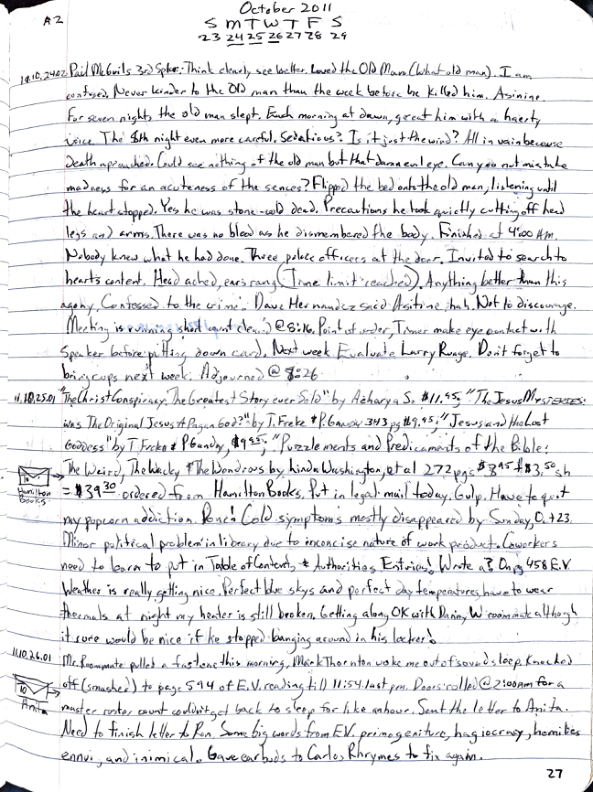 October 2011
A2
S M T W T F S
23 24 25 26 27 28 29
Paul McGuils 3rd Spker. Think clearly, see better. Loved the Old Man. (What old man). I am
confused. Never kinder to the Old man than the week before he killed him. Asinine.
For seven nights the old man slept. Each morning at dawn, great him with a hearty
voice. The 8th night even more careful. Is it just the wind? All in vain because
Death approached. Could see nothing of the old man but that damn evil eye. Can you not mistake
madness for an acuteness of the sences? Flipped the bed onto the old man, listening until
the heart stopped. Yes he was stone-cold dead. Precautions he took quietly cutting off head
legs and arms. There was no blood as he dismembered the body. Finished at 4:00 AM.
Nobody knew what he had done. Three police officers at the door. Invited to search to
hearts content. Head ached, ears rang (Time limit reached). Anything better than this
agony. Confessed to the crime. Dave Hernandez said hah. Not to discourage.
Meeting is running short @ 8:16. Point of order, Timer make eye contact with
Speaker before putting down card. Next week Evaluate Larry Runge. Don't forget to
bring cups next week. Adjourned @ 8:26
11.10.25.01 "The Christ Conspiracy, The Greatest Story ever Sold" by Acharya S. $11.95; "The Jesus Mysteries:
was The Original Jesus A Pagan God?" by T. Freke & P. Gandy 343 pg $9.95; "Jesus and the Lost
Goddess" by T Freke & P Gandy, $9.95; "Puzzlements and Predicaments of the Bible:
The Weird, The Wacky & The Wondrous by Linda Washington, et al 272 pgs $3.95 + $3.50 sh
Hamilton Books
= $39.30 ordered from Hamilton Books. Put in legal mail today. Gulp. Have to quit
my popcorn addiction. Cold symptoms mostly disappeared by Sunday, 0.23.
Minor political problem in library due to inconcise nature of work product. Coworkers
need to learn to put in Table of Contents & Authorities Entries! On pg 458 E.V.
Weather is really getting nice. Perfect blue skys and perfect day temperatures, have to wear
thermals at night my heater is still broken. Getting along OK with Danny, W roommate although
it sure would be nice if he stopped banging around in his locker!
11.10.26.01 Mr. Roommate pulled a fast one this morning, Mark Thornton woke me out of sound sleep. Knocked
off (smashed) to page 594 of E.V. reading till 11:54 last pm. Doors rolled @ 2:00am for a
10
Anita
master roster count couldn't get back to sleep for like an hour. Sent the letter to Anita.
Need to finish letter to Ron. Some big words from E.V. primogeniture,
ennui, and inimical. Gave earbuds to Carlos Rhrymes to fix again.
27